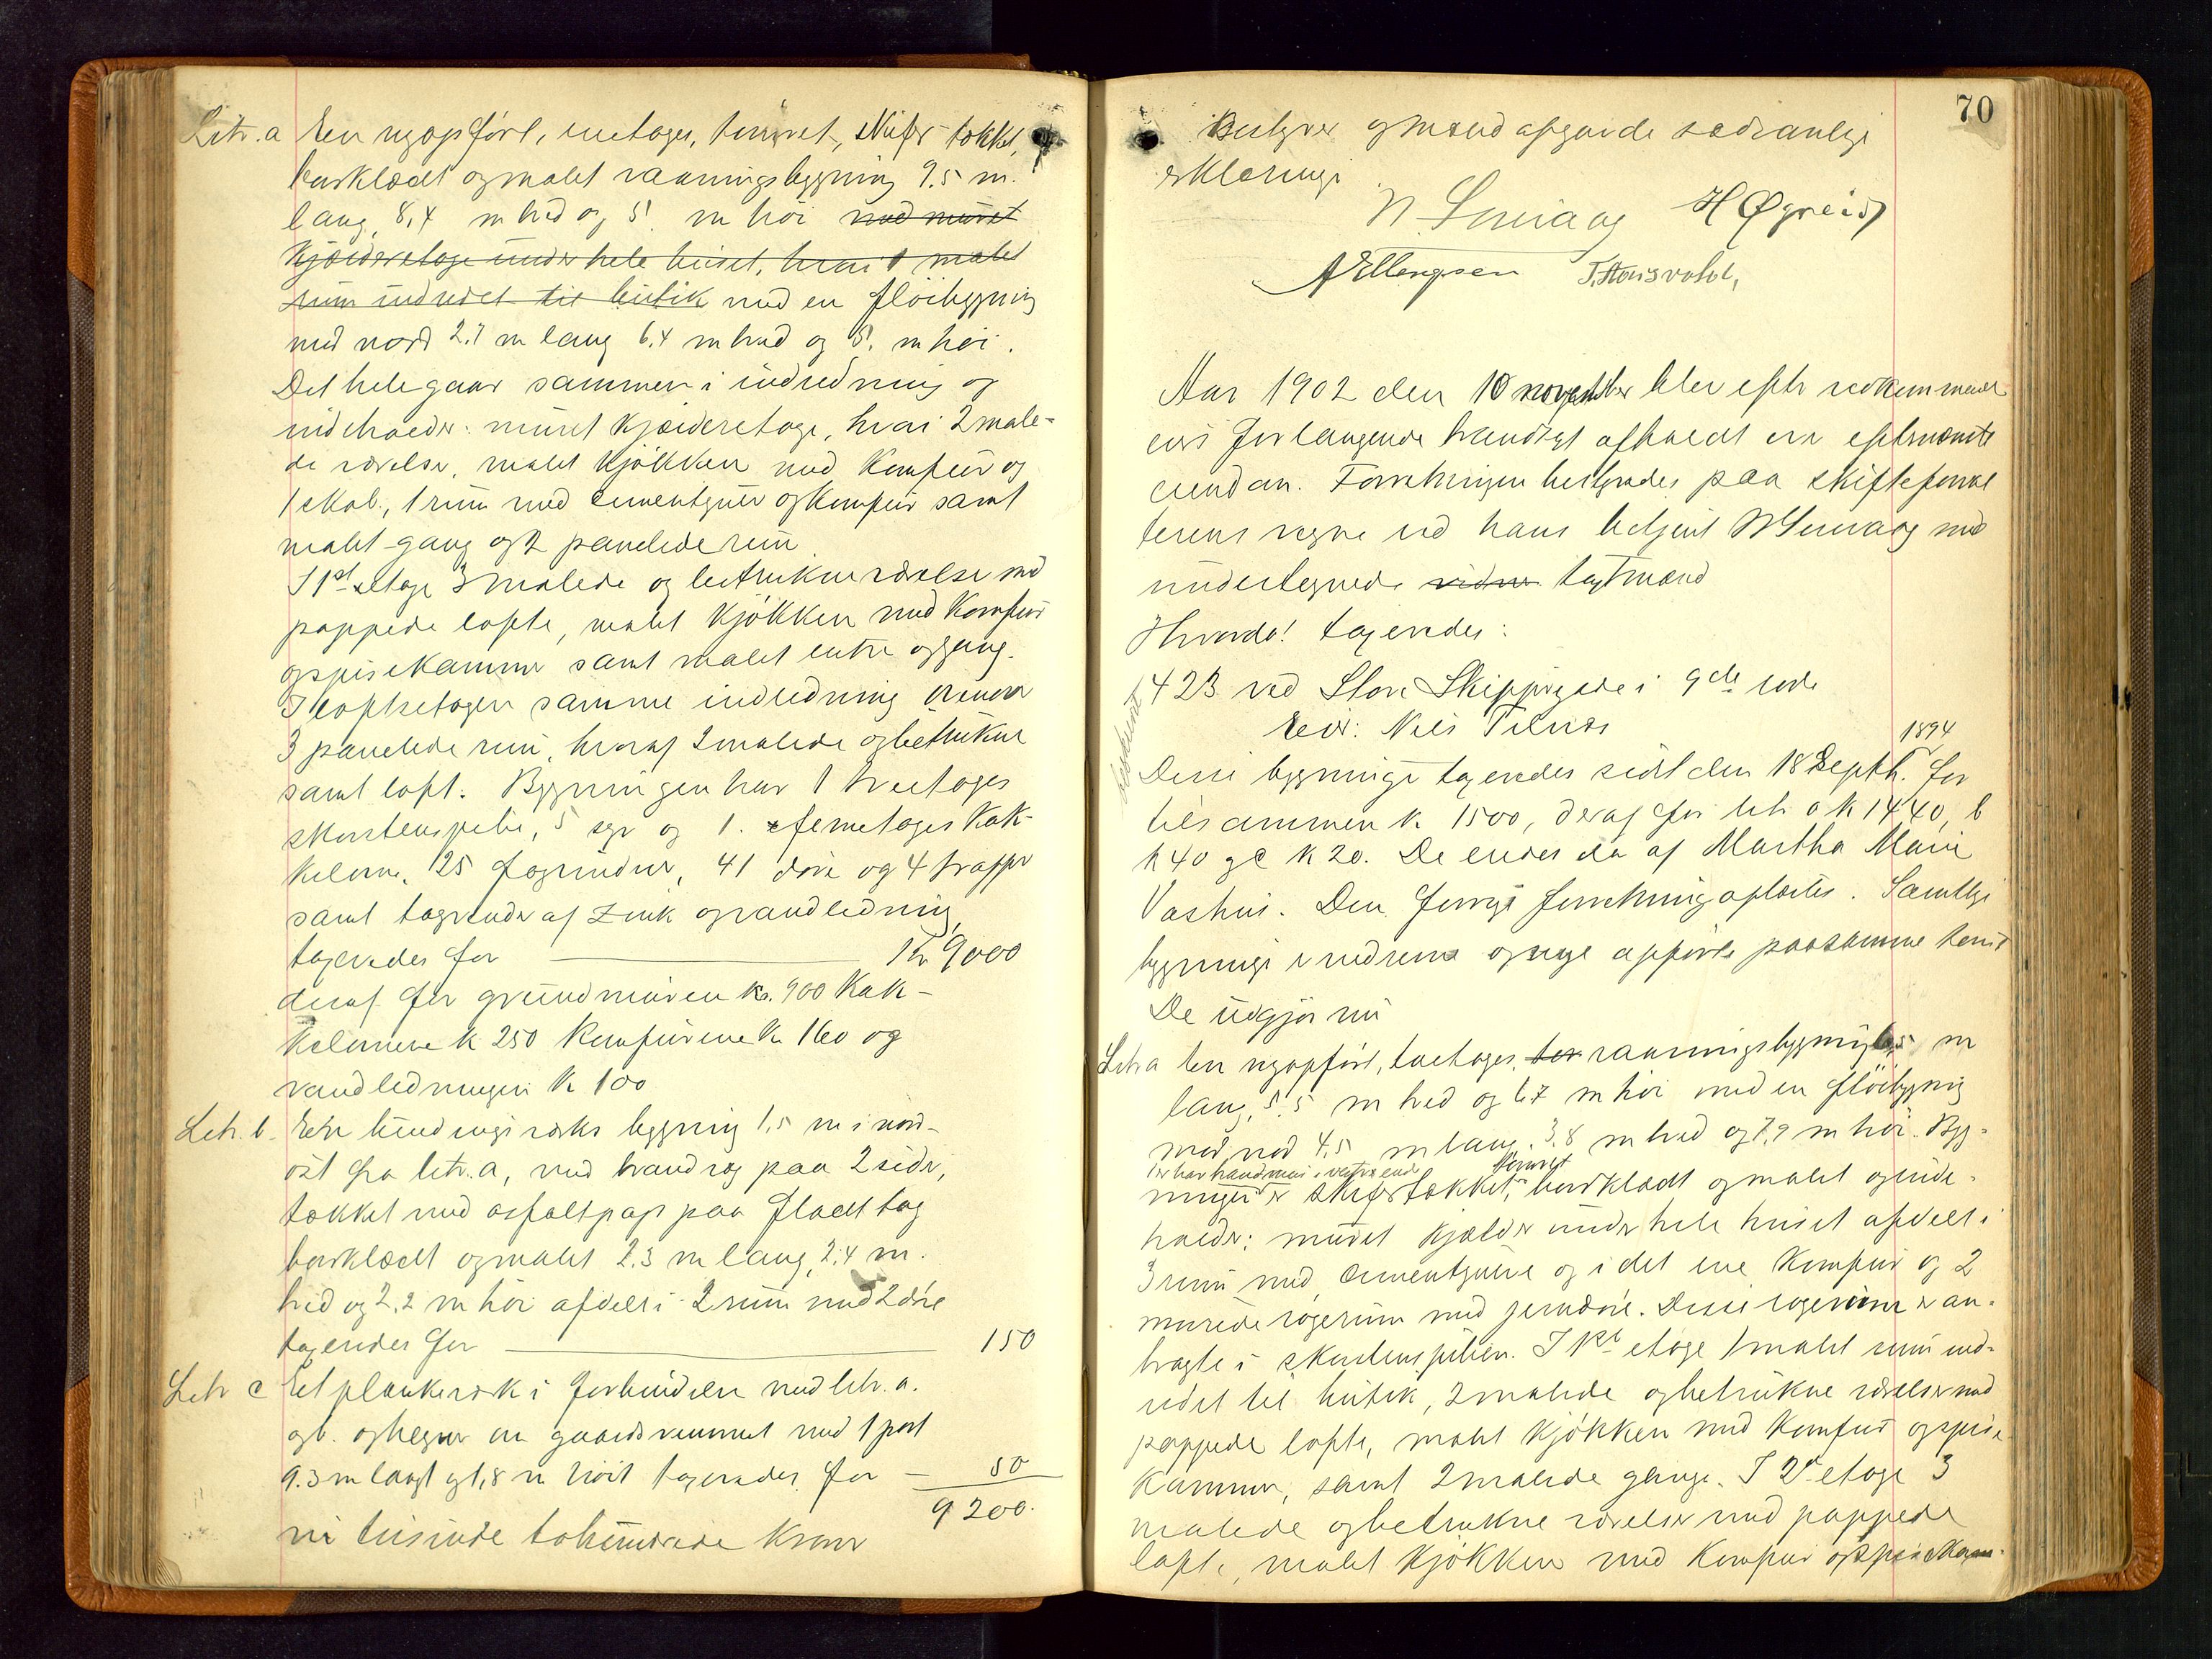 Litr. a En nyopført, enetages, tømret, skifer tækket,
bordklædt og malet vaaningsbygning 9.5 m.
lang, 8,4 m bred og 5. m høi med muret
kjælderetage under hele huset, hvori 1 malet
rum indredet til butik med en fløibygning
mod nord 2.7 m lang 6.4 m bred og 5. m høi.
Det hele gaar sammen i indredning og
indeholder: muret kjælderetage, hvori 2 male-
de værelser, malet kjøkken med komfur og
1 skab, 1 rum med cementgulv og komfur samt
malet gang og 2 panelede rum
I 1ste etage 3 malede og betrukne værelser med
pappede lofte, malet kjøkken med komfur
og spisekammer samt malet entre og gang.
I loftsetagen samme indredning
3 panelede rum, hvoraf 2 malede og betrukne
samt loft. Bygningen har 1 treetages
skorstenspibe, 5 og 1. femetages kak-
kelovne, 25 fag vinduer, 41 døre og 4 trapper
samt tagrender af zink og vandledning,
taxeredes for Kr 9000
deraf for grundmuren kr. 900 kak-
kelovnene k 250 komfurene kr 160 og
vandledningen kr 100
Litr. b. En bindingsværks bygning 1,5 m i nord-
ost fra litr. a, med brandvæg paa 2 sider,
tækket med asfaltpap paa fladt tag
bordklædt og malet 2.3 m lang, 2.4 m.
bred og 2.2 m høi afdelt i 2 rum med 2 døre
taxeredes for 150
Litr c Et plankeværk i forbindelse med litr. a.
og b. og hegner om gaardsrummet med 1 port
9.3 m langt og 1,8 m høit taxeredes for – 50
9200.
ni tusinde tohundrede kroner
70
Bestyrer og mænd afgavde sædvanlige
erklæringer
N. Smiaag H Øgreid
A Ellingsen T. Hausvold,
Aar 1902 den 10 november blev efter vedkommend
eiers forlangende brandtaxt afholdt over efternævnte
eiendom. Forretningen bestyredes paa skifteforval
terens vegne ved hans betjent N Smiaag med
undertegnede vidner taxtmænd
Hvorda! taxeredes:
423 ved Store Skippergade i 9de rode
Eier: Nils Tilnes
1894
Disse bygninger taxeredes sidst den 18 Septb. for
tilsammen k. 1500, deraf for litr a k 1440, b
k 40 og c k 20. De eiedes da af Martha Marie
Vashus. Den forrige forretning oplæstes. Samtlige
bygninger er nedrevne og nye opførte paa samme tomt
De udgjør nu
Litr a En nyopført, toetages, tøm vaaningsbygning 6,5 m
lang, 5.5 m bred og 6.7 m høi med en fløibygning
mod nord 4,5 m lang, 3,8 m bred og 7,9 m høi. Byg-
der har brandmur i vestre ende tømret
ningen er skifertækket, bordklædt og malet og inde-
holder: muret kjælder under hele huset afdelt i
3 rum med cementgulve og i det ene komfur og 2
murede røgerum med jerndøre. Disse røgerum er an-
bragte i skorstenspiben. I 1ste etage 1 malet rum ind-
redet til butik, 2 malede og betrukne værelser med
pappede lofte, malet kjøkken med komfur og spise
kammer, samt 2 malede gange. I 2d etage 3
malede og betrukne værelser med pappede
lofte, malet kjøkken med komfur og spisekam-